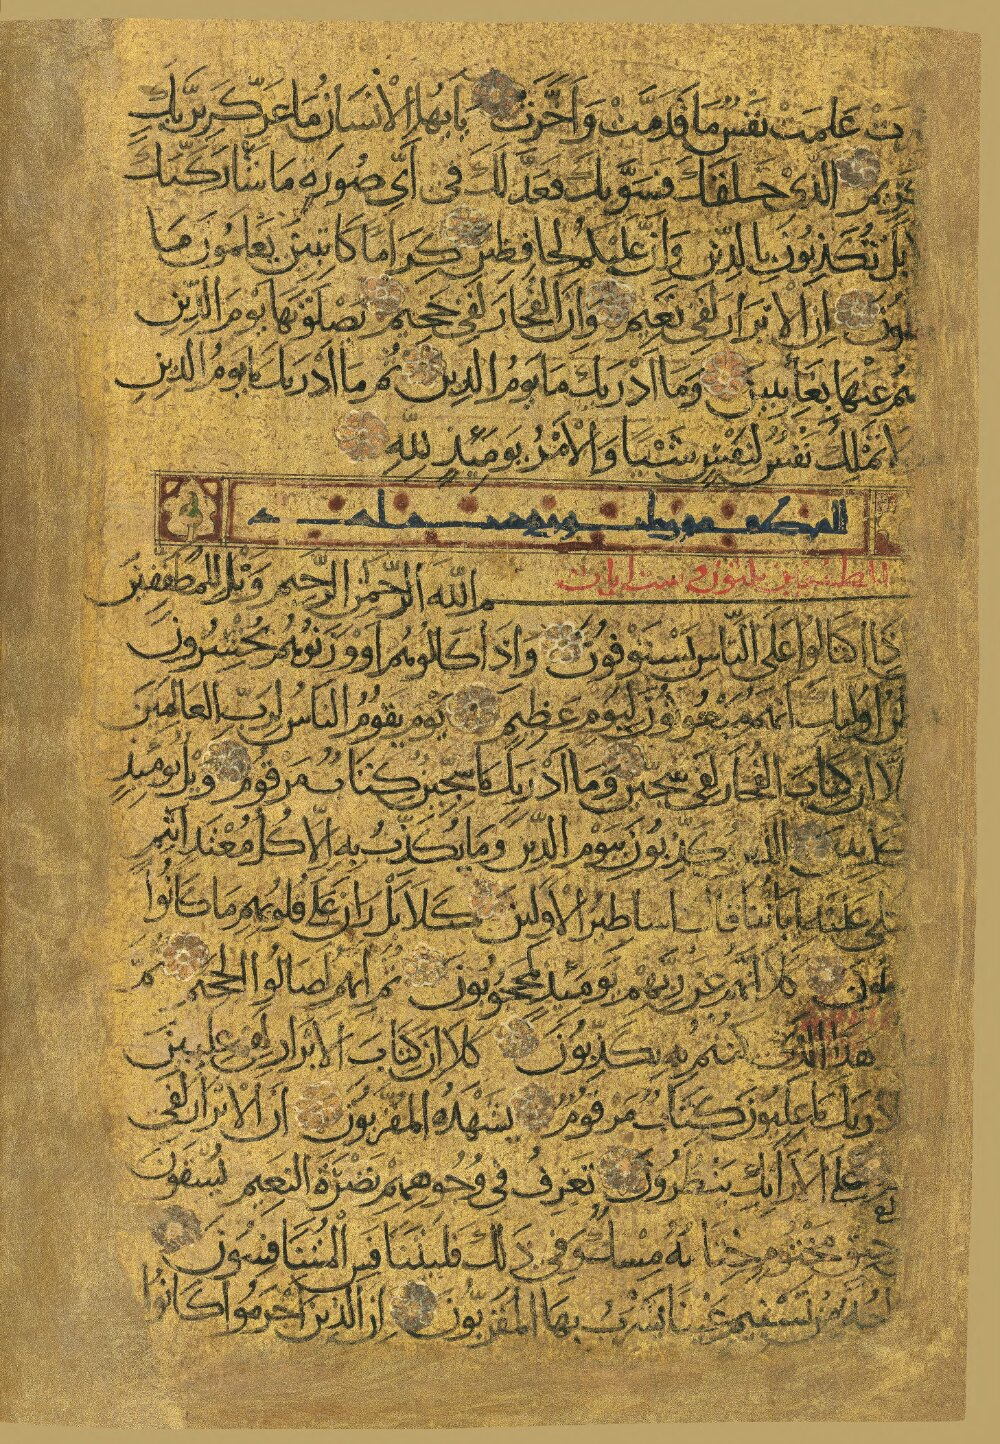 ت علمت نفس ما قدمت وأخرت يا أيها الإنسان ما غرك بربك
كريم الذي خلقك فسويك فعدلك في أي صورة ما شاء ركبك
بل تكذبون بالدين وإن عليكم لحافظين كراما كاتبين يعلمون ما
علون إن الأبرار لفي نعيم وإن الفجار لفي جحيم يصلونها يوم الدين
هم عنها بغائبين وما أدريك ما يوم الدين ثم ما أدريك ما يوم الدين
لا تملك نفس لنفس شيئا والأمر يومئذ لله
المطففين ثلثون و ست ايات
م الله الرحمن الرحيم ويل للمطففين
ذا اكتالوا على الناس يستوفون وإذا كالوهم أو وزنوهم يخسرون
ظن أوليك أنهم مبعوثون ليوم عظيم يوم يقوم الناس لرب العالمين
لا إن كتاب الفجار لفي سجين وما أدريك ما سجين كتاب مرقوم ويل يومئذ
كذبين الذين يكذبون بيوم الدين وما يكذب به إلا كل معتد أثيم
تلى عليه آياتنا قال أساطير الأولين كلا بل ران على قلوبهم ما كانوا
كلا إنهم عن ربهم يومئذ لمحجوبون ثم إنهم لصالوا الجحيم ثم
هذا الذي كنتم به تكذبون كلا إن كتاب الأبرار لفي عليين
دريك ما عليون كتاب مرقوم يشهده المقربون إن الأبرار لفي
على الأرايك ينظرون تعرف في وجوههم نضرة النعيم يسقون
حيق مختوم ختامه مسك وفي ذلك فليتنافس المتنافسون
من تسنيم عينا يشرب بها المقربون إن الذين أجرموا كانوا